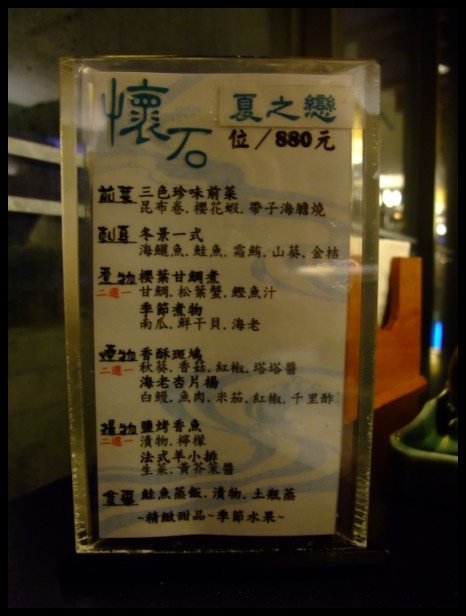 懷石
夏之戀
位/880元
前菜 三色珍味前菜
昆布卷.櫻花蝦.帶子海膽燒
刺身 冬景一式
海鱺魚.鮭魚.霜鮪.山葵.金桔
煮物 櫻葉甘鯛煮
二選一 甘鯛.松葉蟹.鰹魚汁
季節煮物
南瓜.鮮干貝.海老
香酥斑鳩
二選一 秋葵.香菇.紅椒.塔塔醬
海老杏片揚
白鰻.魚肉.米茄.紅椒.千里酢
揚物 鹽烤香魚
二選一 漬物.檸檬
法式羊小排
生菜.黃芥茉醬
食事 鮭魚蒸飯.漬物.土瓶蒸
~精緻甜品~季節水果~